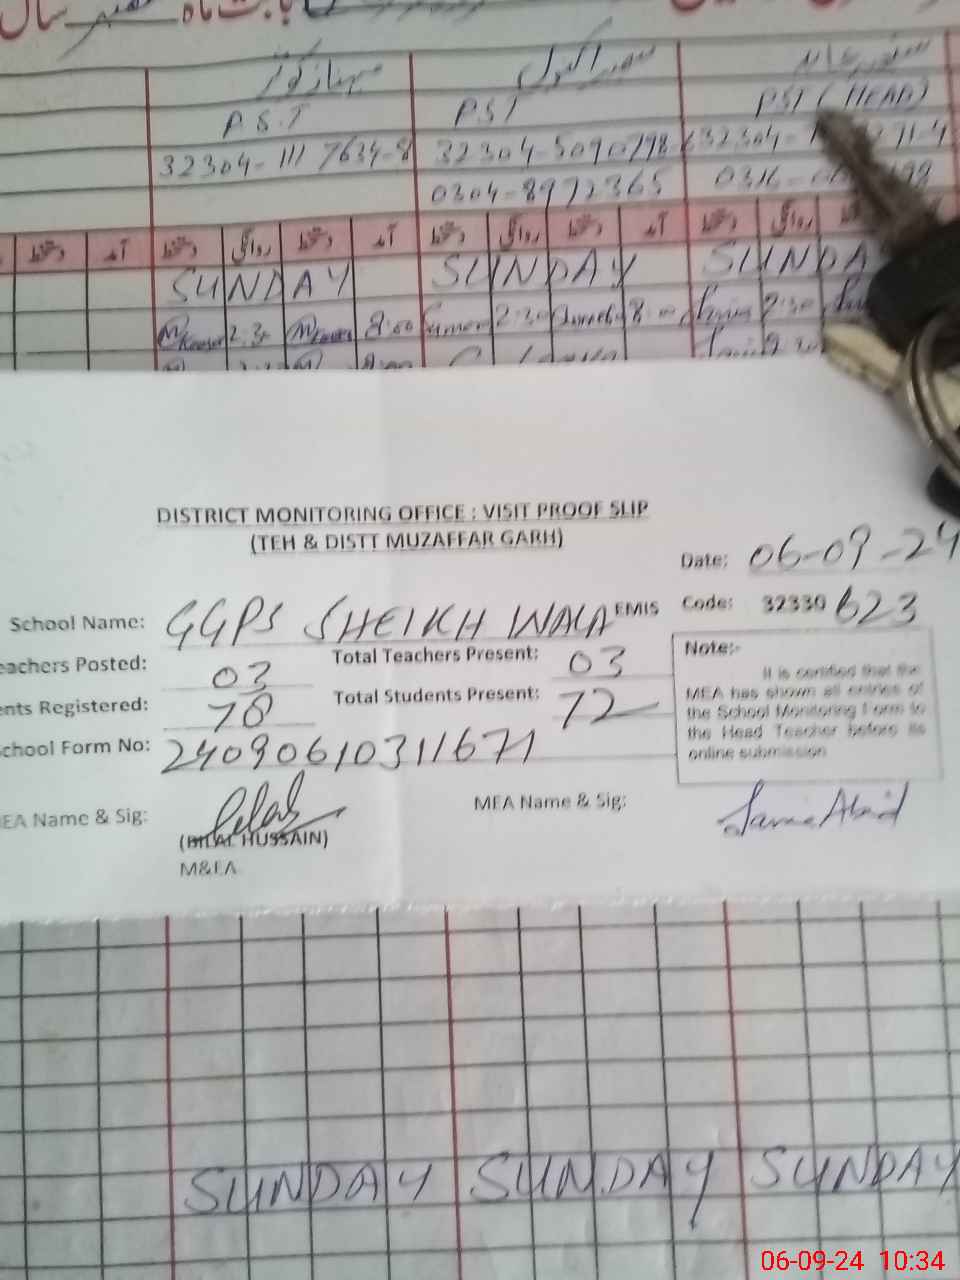 بابت ماہ سال
P.S.T PST PST (HEAD)
32304-1117634-8 32304-5090798-6 32304- 271-4
0304-8972365 0316-
دستخط آمد دستخط روانگی دستخط آمد دستخط روانگی دستخط آمد دستخط روانگی
SUNDAY SUNDAY SUNDA
2:30 8:00 2:30 8:00 2:30
DISTRICT MONITORING OFFICE : VISIT PROOF SLIP
(TEH & DISTT MUZAFFAR GARH)
Date: 06-09-24
School Name: GGPS SHEIKH WALA EMIS Code: 32330 623
eachers Posted: 03 Total Teachers Present: 03
ents Registered: 78 Total Students Present: 72
chool Form No: 24090610311671
Note:-
It is certified that the
MEA has shown all entries of
the School Monitoring Form to
the Head Teacher before its
online submission
EA Name & Sig: MEA Name & Sig:
(BILAL HUSSAIN)
M&EA
SUNDAY SUNDAY SUNDAY
06-09-24 10:34